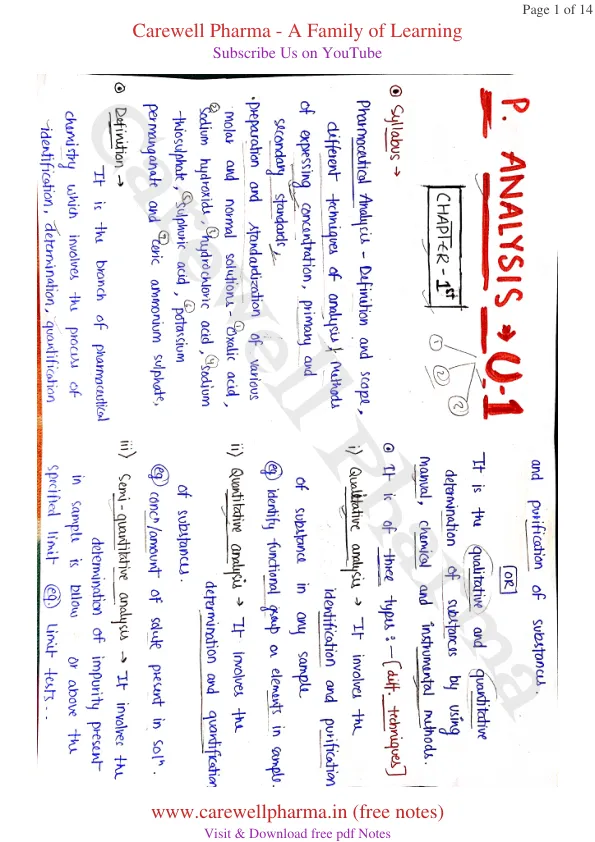 Page 1 of 14
Carewell Pharma - A Family of Learning
Subscribe Us on YouTube
P. ANALYSIS → U.1
CHAPTER - 1st
① ② ②
Syllabus →
Pharmaceutical Analysis - Definition and scope,
different techniques of analysis, methods
of expressing concentration, primary and
secondary standards
• preparation and standardization of various
molar and normal solutions - ① Oxalic acid,
② Sodium hydroxide, ③ hydrochloric acid, ④ sodium
-thiosulphate, ⑤ sulphuric acid, ⑥ potassium
permanganate and ⑦ ceric ammonium sulphate,
Definition →
It is the branch of pharmaceutical
chemistry which involves the process of
identification, determination, quantification
and purification of substances.
OR
It is the qualitative and quantitative
determination of substances by using
manual, chemical and instrumental methods.
It is of three types :- [diff. techniques]
i) Qualitative analysis → It involves the
identification and purification
of substance in any sample
eg identify functional group or elements in sample.
ii) Quantitative analysis → It Involves the
determination and quantification
of substances.
eg concn/amount of solute present in soln.
iii) Semi-quantitative analysis → It involves the
determination of impurity present
in sample is bllow or above the
specified limit eg. limit tests...
Carewell Pharma
www.carewellpharma.in (free notes)
Visit & Download free pdf Notes